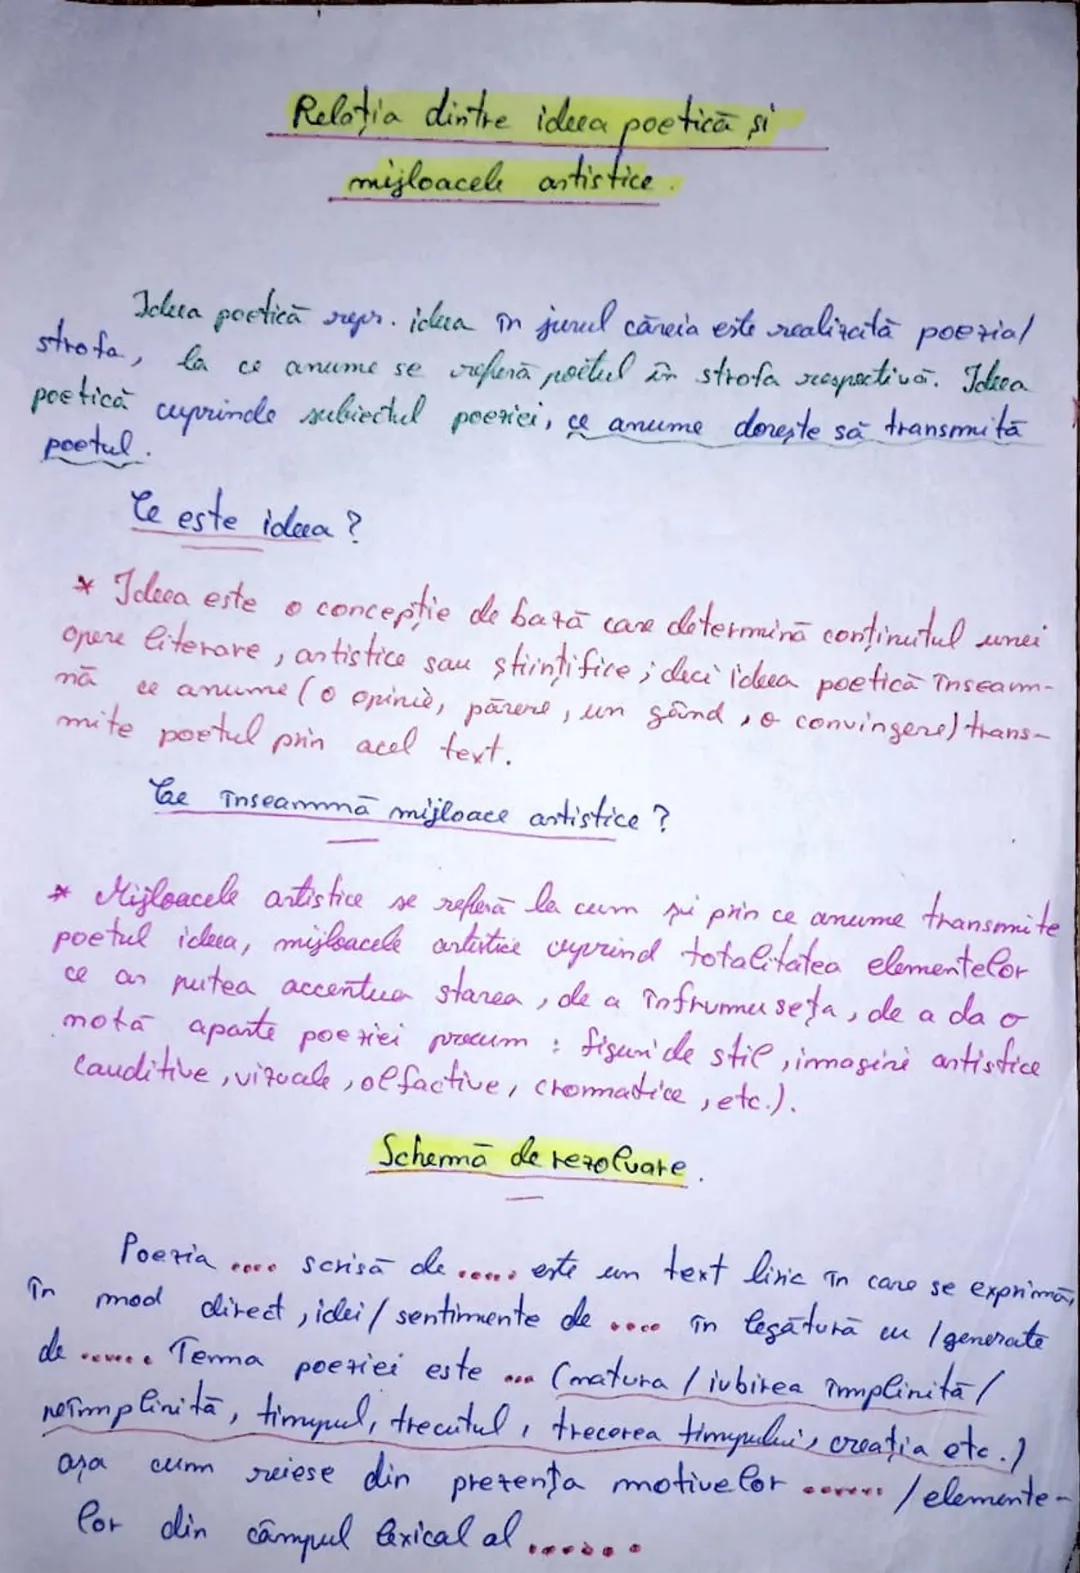 Relația dintre ideea poetică și
mijloacele artistice.
Ideea poetică repr. ideea în jurul căreia este realizată poezia/
strofa, la ce anume se referă poetul în strofa respectivă. Ideea
poetică cuprinde subiectul poeziei, ce anume dorește să transmită
poetul.
Ce este ideea?
* Ideea este o concepție de bază care determină conținutul unei
opere literare, artistice sau științifice; deci ideea poetică înseam-
nă ce anume (o opinie, părere, un gând, o convingere) trans-
mite poetul prin acel text.
Ce înseamnă mijloace artistice?
* Mijloacele artistice se referă la cum și prin ce anume transmite
poetul ideea, mijloacele artistice cuprind totalitatea elementelor
ce ar putea accentua starea, de a înfrumuseța, de a da o
notă aparte poeziei precum: figuri de stil, imagini artistice
(auditive, vizuale, olfactive, cromatice, etc.).
Schemă de rezolvare.
Poezia .... scrisă de ..... este un text liric în care se exprimă,
în mod direct, idei/sentimente de .... în legătură cu /generate
de ...... Tema poeziei este ... (natura/iubirea împlinită/
neîmplinită, timpul, trecutul, trecerea timpului, creația etc.)
așa cum reiese din prezența motivelor ...... /elemente-
lor din câmpul lexical al ......